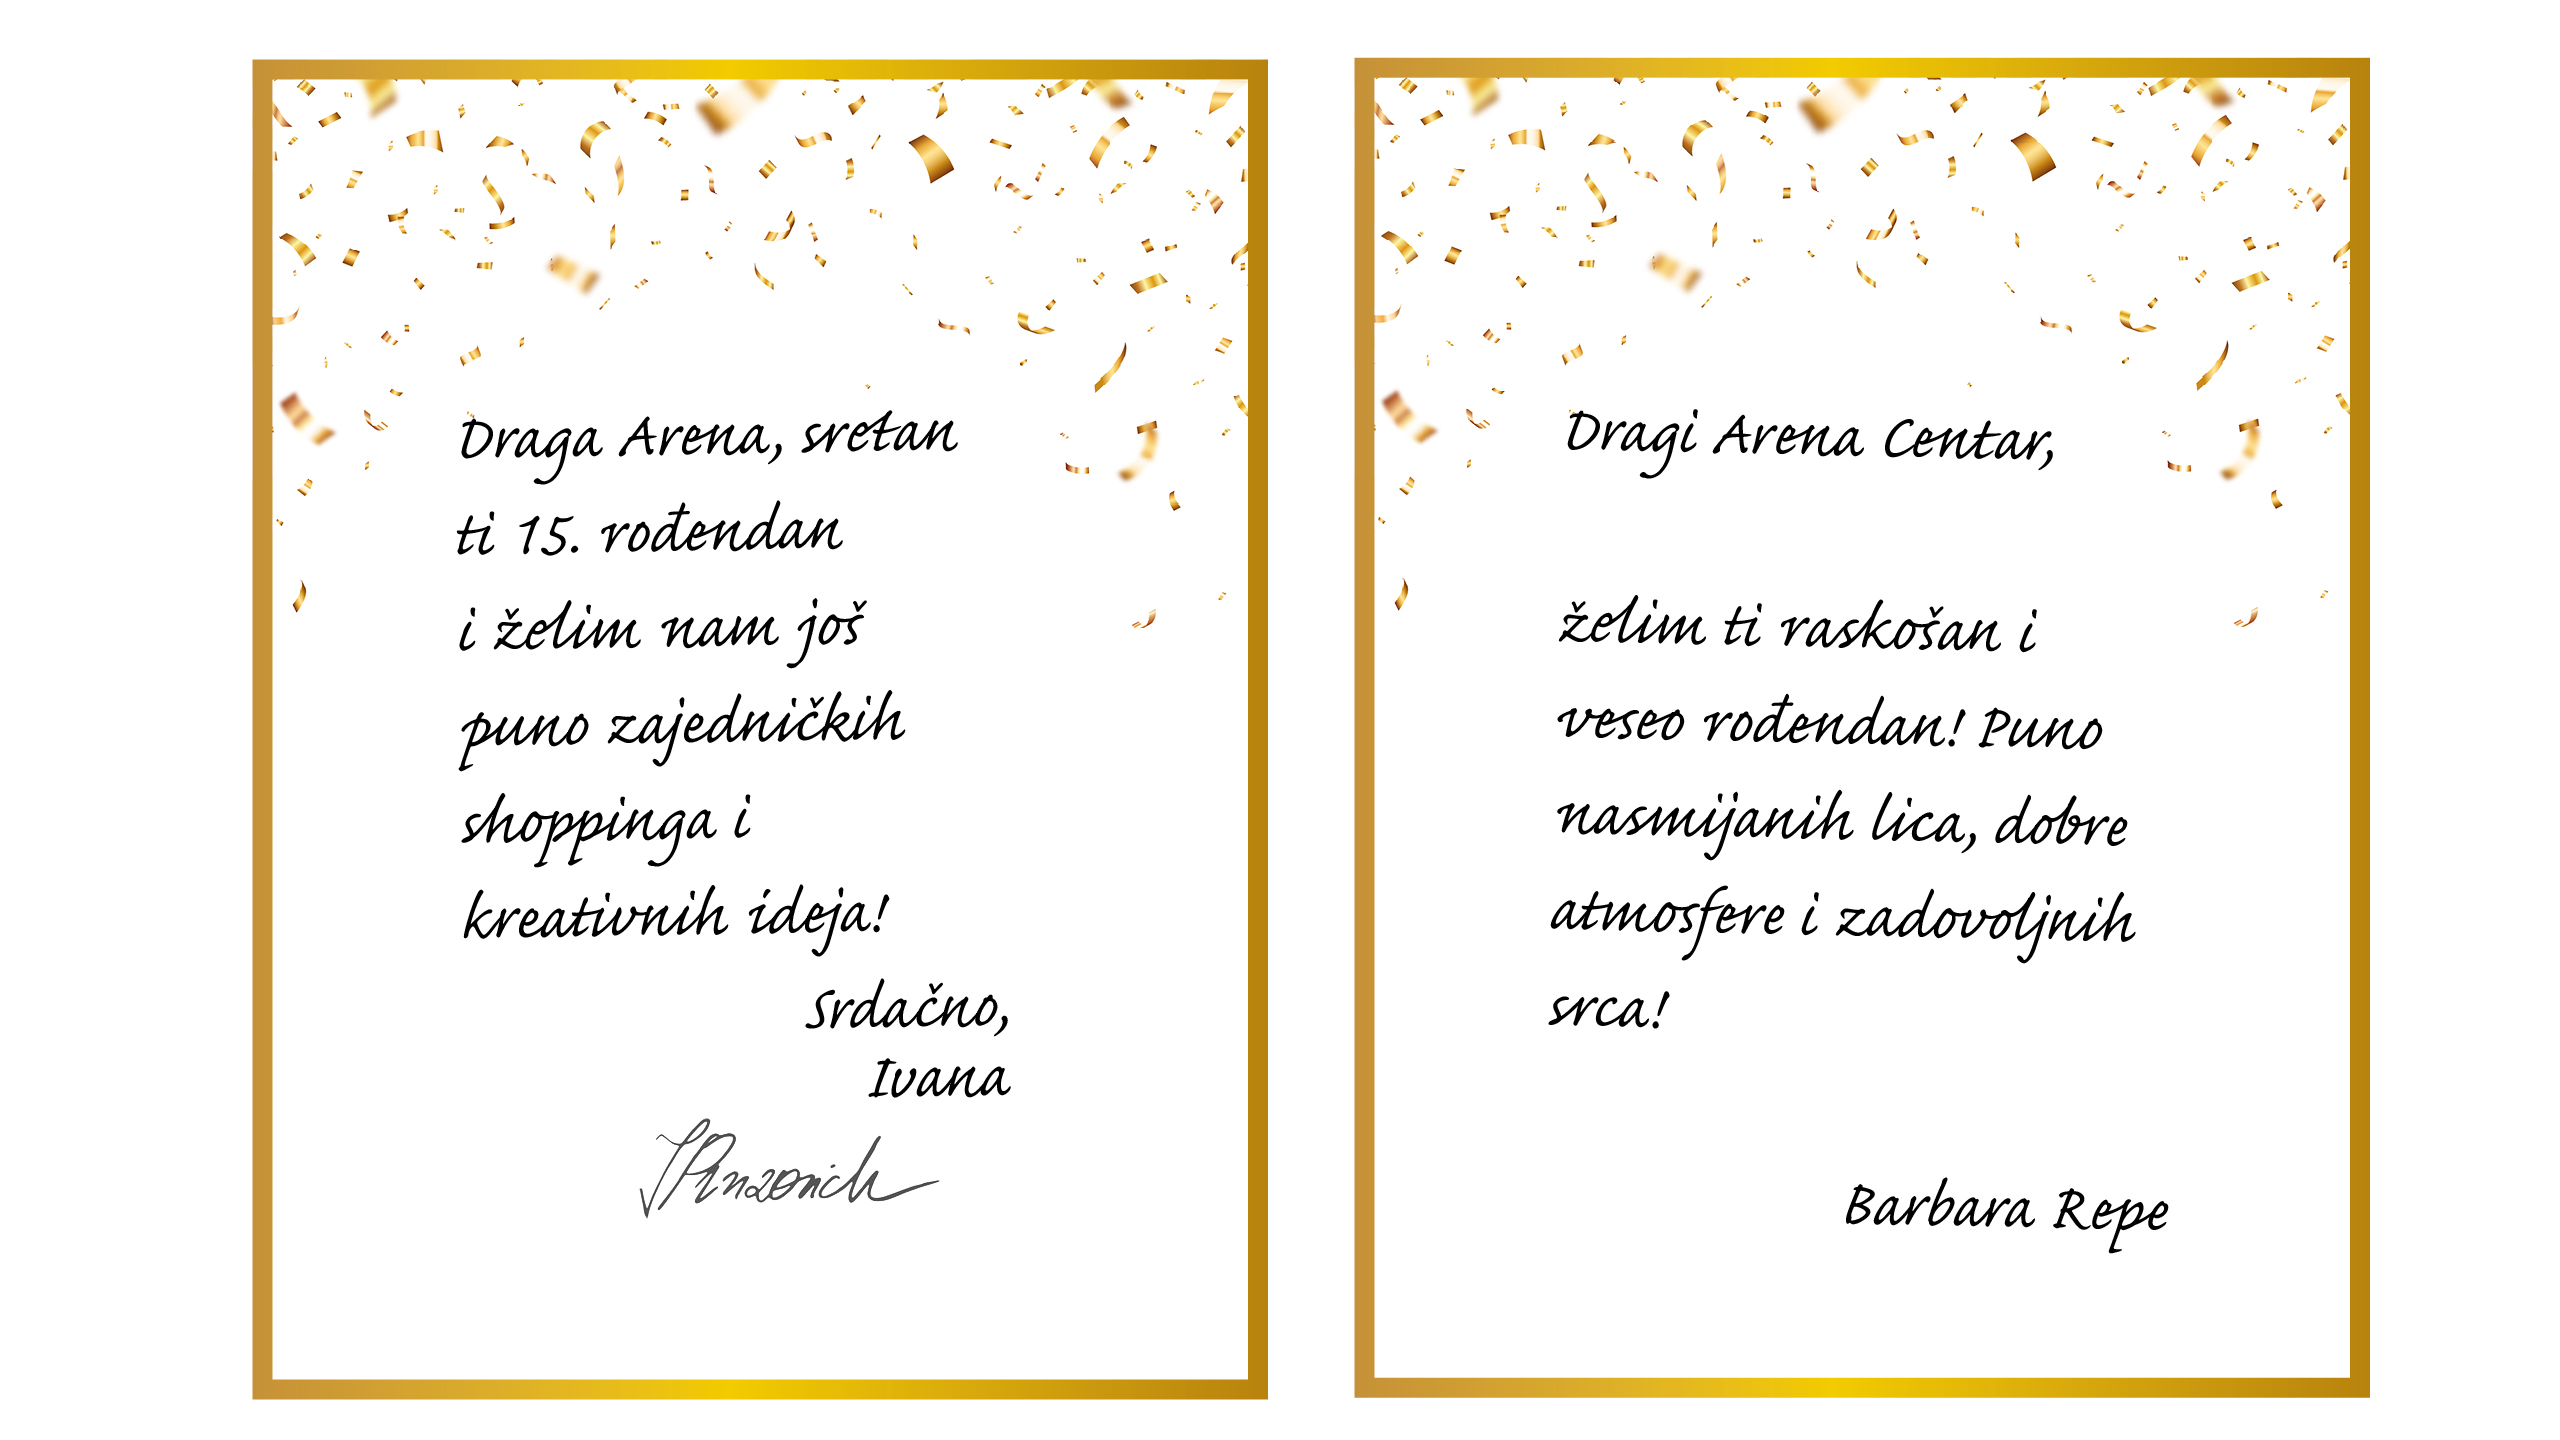 Draga Arena, sretan
ti 15. rođendan
i želim nam još
puno zajedničkih
shoppinga i
kreativnih ideja!
Srdačno,
Ivana
Dragi Arena Centar,
želim ti raskošan i
veseo rođendan! Puno
nasmijanih lica, dobre
atmosfere i zadovoljnih
srca!
Barbara Repe